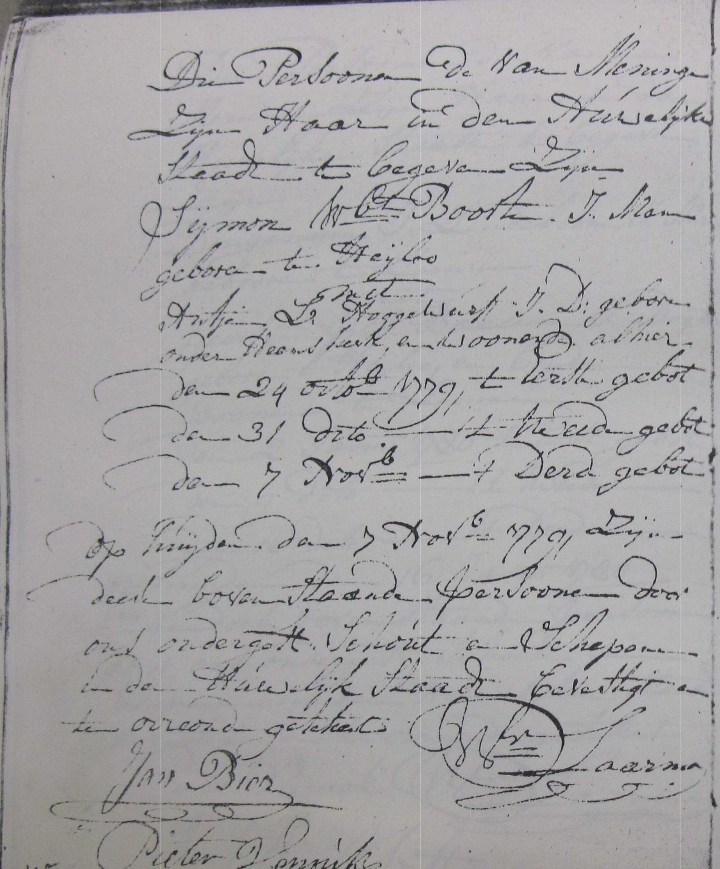 Die Persoonen de van Meninge
Zijn Haar in den Huwelijke
Staadt te begeven Zijn
Sijmon Wbt Boost. J. Man
geboren te Heijloo
met
Antje Ls Hoggewerf J. D. geboren
onder Heemskerk en woonende alhier
den 24 octob 1779 t Eerste gebot
den 31 dito t tweede gebot
den 7 Novb t Derde gebot
op huijden den 7 Novb 1779 Zijn
deese boven staande persoonen door
ons ondergett. Schout en Schepenen
in den Huwelijk Staadt bevestigt en
ten oirconde getekent
Wm Laarman
Jan Bier
Pieter